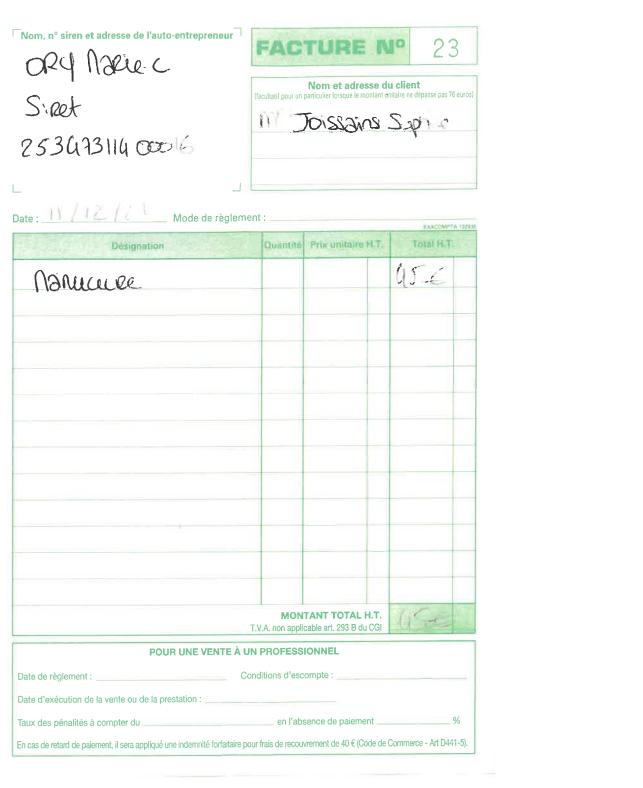 Nom, n° siren et adresse de l'auto-entrepreneur
ORY Marie-C
Siret
253473114 00016
FACTURE N° 23
Nom et adresse du client
(facultatif pour un particulier lorsque le montant unitaire ne dépasse pas 76 euros)
Joissains
Date : 11/12/
Mode de règlement :
EXACOMPTA
Désignation Quantité Prix unitaire H.T. Total H.T.
Manucure 45 €
MONTANT TOTAL H.T. 45 €
T.V.A. non applicable art. 293 B du CGI
POUR UNE VENTE À UN PROFESSIONNEL
Date de règlement : Conditions d'escompte :
Date d'exécution de la vente ou de la prestation :
Taux des pénalités à compter du en l'absence de paiement %
En cas de retard de paiement, il sera appliqué une indemnité forfaitaire pour frais de recouvrement de 40 € (Code de Commerce - Art D441-5).